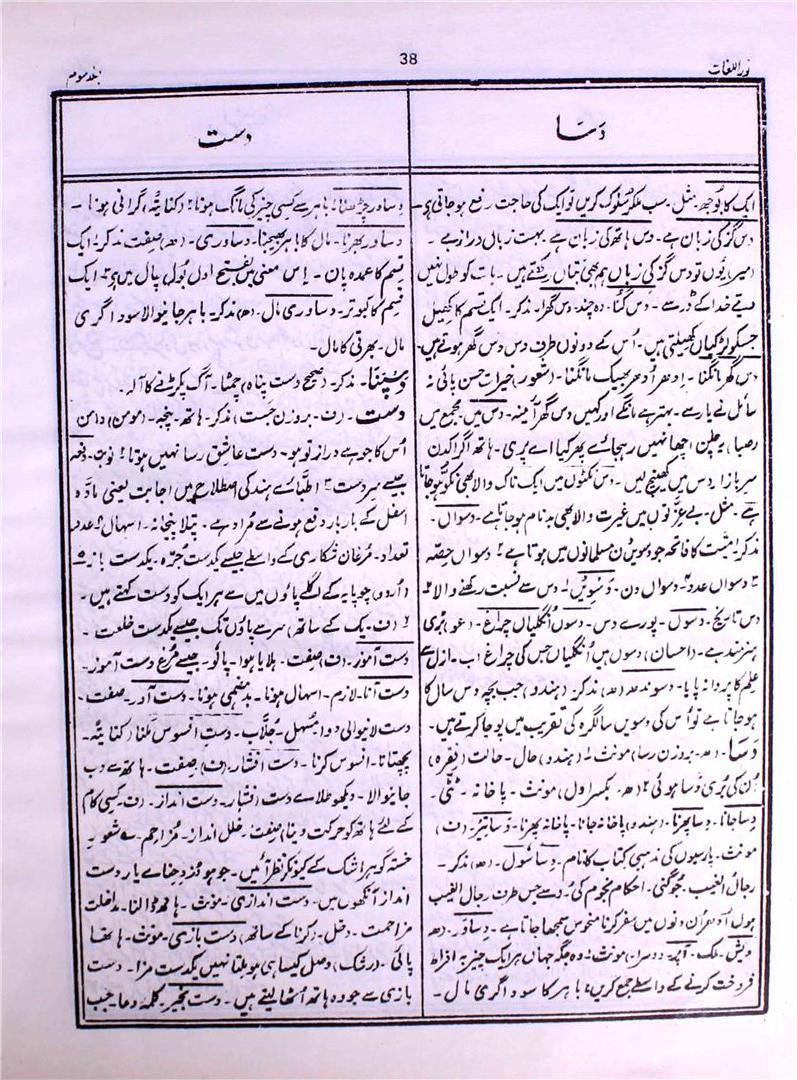 نور اللغات
38
جلد سوم
دَسَا
دست
ایک کا بوجھ۔ مثل۔ سب ملکر سلوک کریں تو ایک کی حاجت رفع ہو جاتی ہے۔
دس گز کی زبان ہے۔ دس ہاتھ کی زبان ہے۔ بہت زباں دراز ہے۔
(میر) یوں تو دس گز کی زباں ہم بھی بتاں رکھتے ہیں۔ بات کو طول نہیں
دیتے خدا کے ڈر سے۔ دس گنا۔ دہ چند۔ دس گھرا۔ مذکر۔ ایک قسم کا کھیل
جسکو لڑکیاں کھیلتی ہیں۔ اُس کے دونوں طرف دس دس گھر ہوتے ہیں۔
دس گھر مانگنا۔ اِدھر اُدھر بھیک مانگنا۔ (شعور) خیراتِ حسن پائی نہ
سائل نے یار سے۔ بہتر ہے مانگے اور کہیں دس گھر آئینہ۔ دس میں مجمع میں
(صبا) یہ چلن اچھا نہیں رہجائے پھر کیا اے پری۔ ہاتھ اگر اکدن
سر بازار دس میں کھینچ لیں۔ دس نکٹوں میں ایک ناک والا بھی نکّو ہو جاتا
ہے۔ مثل۔ بے عزّتوں میں غیرت والا بھی بدنام ہو جاتا ہے۔ دسواں۔
مذکر۔ میّت کا فاتحہ جو دسویں دن مسلمانوں میں ہوتا ہے ۲ دسواں حصّہ
۳ دسواں عدد ۴ دسواں دن۔ دسویں ۱ دس سے نسبت رکھنے والا ۲
دس تاریخ۔ دسوں۔ پورے دس۔ دسوں اُنگلیاں چراغ۔ (عو) بڑی
ہنرمند ہے۔ (داحسان) دسوں ہیں اُنگلیاں جس کی چراغ اب۔ ازل سے
علم کا پروانہ پایا۔ دسوندھ (ھ) مذکر۔ (ہندو) جب بچہ دس سال کا
ہو جاتا ہے تو اُس کی دسویں سالگرہ کی تقریب میں پوجا کرتے ہیں۔
دَسَا۔ (ھ۔ بروزن رسا) مونث ۱ (ہندو) حال۔ حالت (فقرہ)
اُن کی بُری دَسا ہوئی ۲ (ھ۔ بکسر اول) مونث۔ پاخانہ۔ ٹٹی۔
دِسا جانا۔ دِسا پھرنا۔ (ہندو) پاخانہ جانا۔ پاخانہ پھرنا۔ دساتیر۔ (ف)
مونث۔ پارسیوں کی مذہبی کتاب کا نام۔ دِسا سُول۔ (ھ) مذکر۔
رجال الغیب۔ جوگنی۔ احکام نجوم کی رُو سے جس طرف رجال الغیب
ہوں اُدھر اُن دنوں میں سفر کرنا منحوس سمجھا جاتا ہے۔ دِساور۔ (ھ
دیش۔ ملک۔ آپر۔ دوسرا) مونث ۱ وہ جگہ جہاں ہر ایک چیز بہ افراط
فروخت کرنے کے واسطے جمع کریں ۲ باہر کا سوداگری مال۔
دِساور چڑھنا ۱ باہر سے کسی چیز کی مانگ ہونا ۲ (کنایۃً) گرانی ہونا۔
دساور بھرنا۔ مال کا باہر بھیجنا۔ دساوری۔ (ھ) صفت۔ مذکر ۱ ایک
قسم کا عمدہ پان۔ اِس معنی میں بفتح اول بول چال میں ہے ۲ ایک
قسم کا کبوتر۔ دساوری مال۔ (ھ) مذکر۔ باہر جانیوالا سوداگری
مال۔ بھرتی کا مال۔
دسپنا۔ مذکر۔ (صحیح دست پناہ) چمٹا۔ آگ پکڑنے کا آلہ۔
دست۔ (ف۔ بروزن جَست) مذکر۔ ہاتھ۔ پنجہ۔ (مومن) دامن
اُس کا جو ہے دراز تو ہو۔ دستِ عاشق رسا نہیں ہوتا ۲ نوبت۔ دفعہ
جیسے سرِ دست ۳ اطبّائے ہند کی اصطلاح میں اجابت یعنی مادّہ
اسفل کے باربار دفع ہونے سے مُراد ہے۔ پتلا پیخانہ۔ اسہال ۴ عدد
تعداد۔ مرغانِ شکاری کے واسطے جیسے یکدست جُرّہ۔ یکدست باز ۵
(اُردو) چوپایہ کے اگلے پاؤں میں سے ہر ایک کو دست کہتے ہیں۔
۶ (ف۔ یک کے ساتھ) سر سے پاؤں تک جیسے یکدست خلعت۔
دست آموز۔ (ف) صفت۔ ہلایا ہوا۔ پالتو۔ جیسے مرغِ دست آموز۔
دست آنا۔ لازم۔ اسہال ہونا۔ بدہضمی ہونا۔ دست آور۔ صفت۔
دست لانیوالی دوا۔ مُسہل۔ جُلّاب۔ دستِ افسوس مَلنا۔ کنایۃً۔
پچھتانا۔ افسوس کرنا۔ دست افشار۔ (ف) صفت۔ ہاتھ سے دب
جانیوالا۔ دیکھو طلائے دست افشار۔ دست انداز۔ (ف۔ کسی کام
کے لئے ہاتھ کو حرکت دینا) صفت۔ خلل انداز۔ مُزاحم۔
خستہ گوہر اشک کے کیونکر نظر آئیں۔ جو ہو دُزدِ حنائے یار دست
انداز آنکھوں میں۔ دست اندازی۔ مونث۔ ہاتھ ڈالنا۔ مداخلت
مزاحمت۔ دخل۔ (کرنا کے ساتھ) دست بازی۔ مونث۔ ہاتھا
پائی۔ (رشک) وصل کیسا ہی ہو ملتا نہیں یکدست مزا۔ دست
بازی سے جو وہ ہاتھ اُٹھا لیتے ہیں۔ دست بخیر۔ کلمہ دعا۔ جب